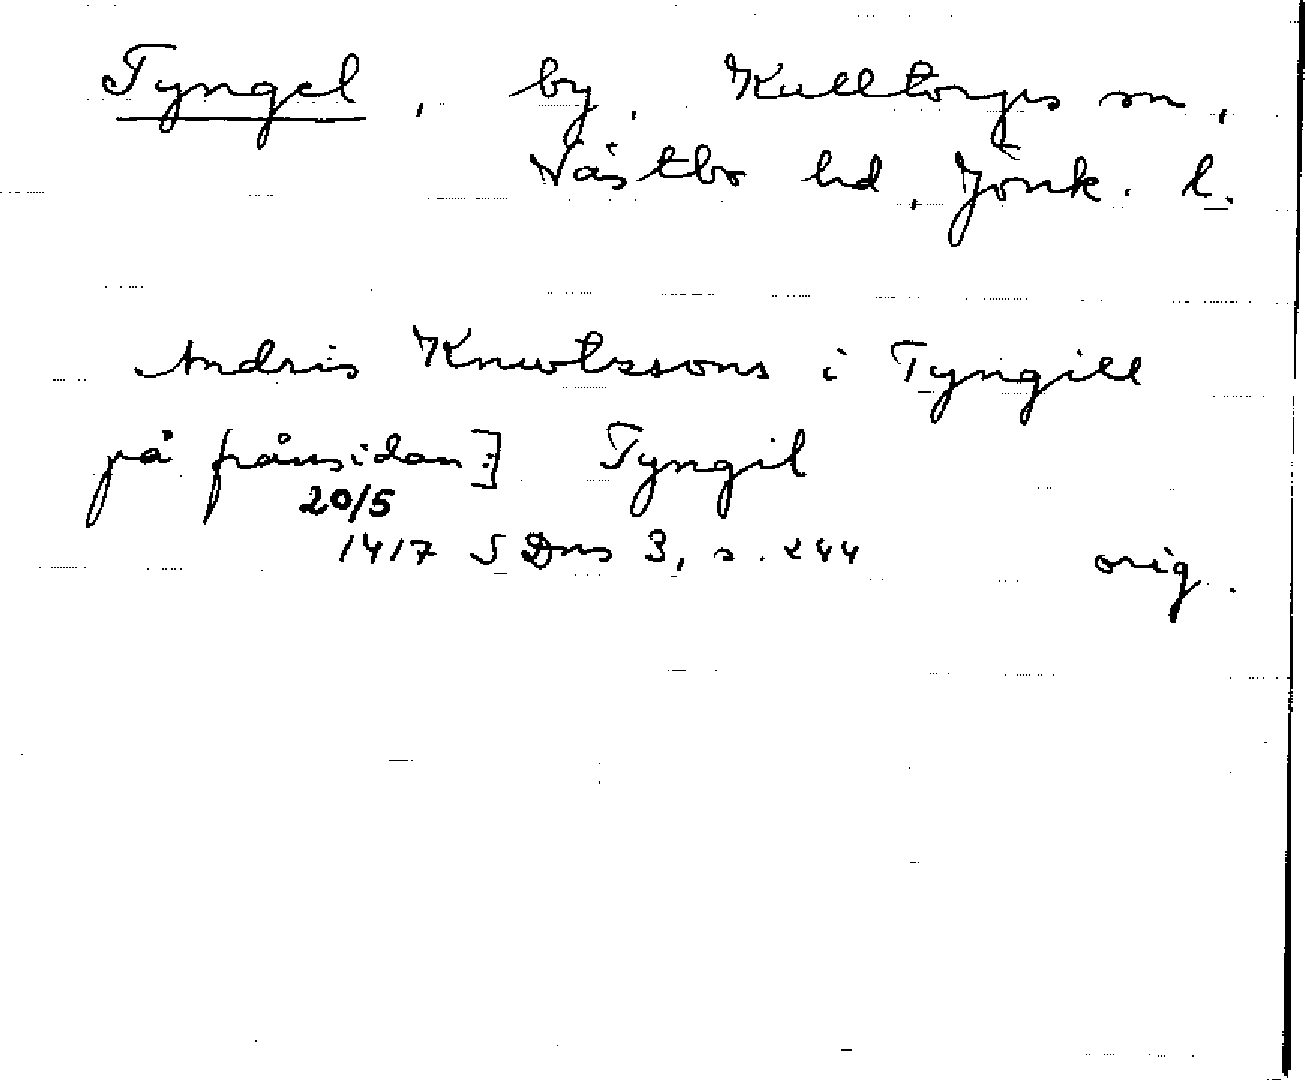 Tyngel, by, Kulltorps sn,
Västbo hd, Jönk. l.
Andris Knwtzssons i Tyngill
på frånsidan:] Tyngil
20/5
1417 SDns 3, s. 244 orig.